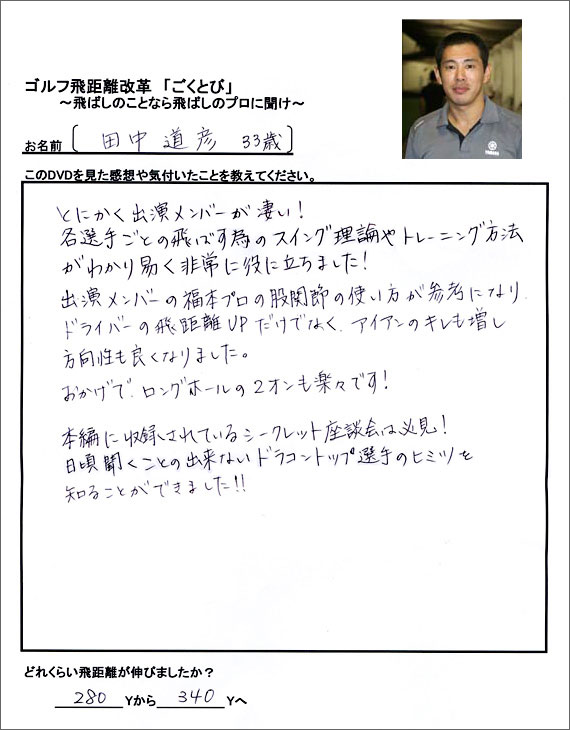 ゴルフ飛距離改革 「ごくとび」
～飛ばしのことなら飛ばしのプロに聞け～
お名前 〔 田中 道彦 33歳 〕
このDVDを見た感想や気付いたことを教えてください。
とにかく出演メンバーが凄い!
各選手ごとの飛ばす為のスイング理論やトレーニング方法
がわかり易く非常に役に立ちました!
出演メンバーの福本プロの股関節の使い方が参考になり
ドライバーの飛距離UPだけでなく、アイアンのキレも増し
方向性も良くなりました。
おかげで、ロングホールの2オンも楽々です!
本編に収録されているシークレット座談会は必見!
日頃聞くことの出来ないドラコントップ選手のヒミツを
知ることができました!!
どれくらい飛距離が伸びましたか?
280 Yから 340 Yへ
YAMAHA